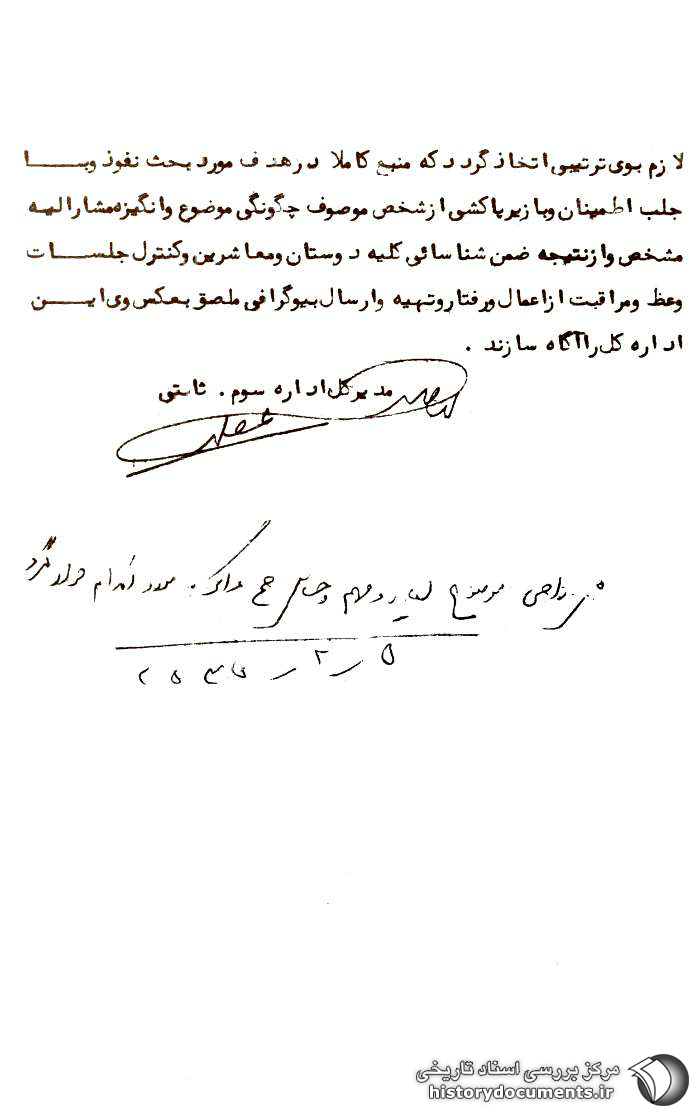 لازم بوی ترتیبی اتخاذ گردد که منبع کاملا در هدف مورد بحث نفوذ و بـــا
جلب اطمینان و با زیر پاکشی از شخص موصوف چگونگی موضوع و انگیزه مشارالیه
مشخص و از نتیجه ضمن شناسائی کلیه دوستان و معاشرین و کنترل جلســات
وعظ و مراقبت از اعمال و رفتار و تهیه و ارسال بیوگرافی ملصق بعکس وی ایــن
اداره کل را آگاه سازند .
مدیر کل اداره سوم . ثابتی
موضوع
مهم
مرکز بررسی اسناد تاریخی
historydocuments.ir